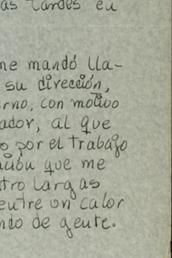 as tardes en
me mandó lla-
su dirección,
erno, con motivo
ador, al que
o por el trabajo
que me
tro largas
entre un calor
ndo de gente.